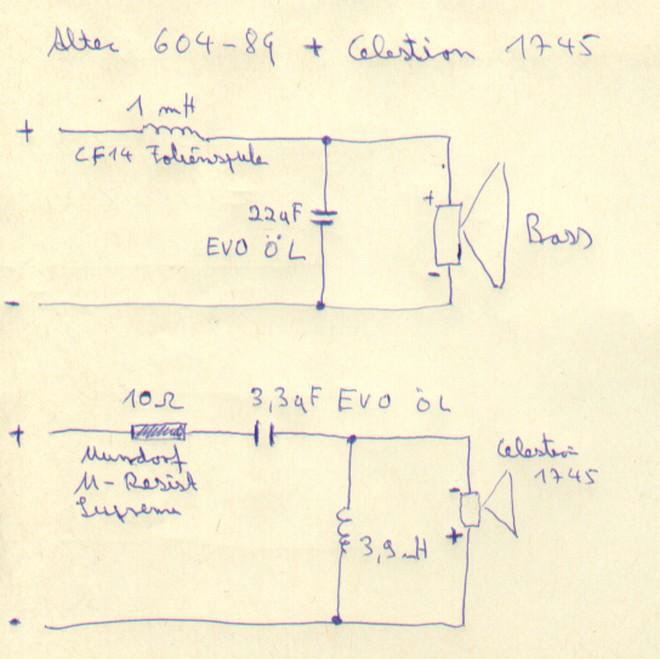 Altec 604-8G + Celestion 1745
+
1 mH
CF14 Folienspule
22uF
EVO ÖL
+
-
Bass
-
10Ω
3,3uF EVO ÖL
+
Mundorf
M-Resist
Supreme
Celestion
1745
-
+
3,9mH
-